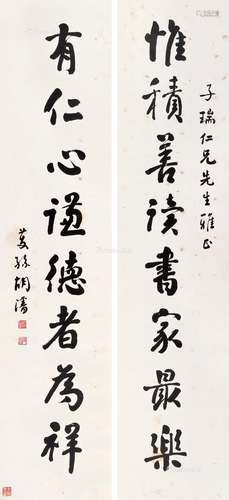 子瑞仁兄先生雅正
惟積善讀書家最樂
有仁心謙德者為祥
胡濬